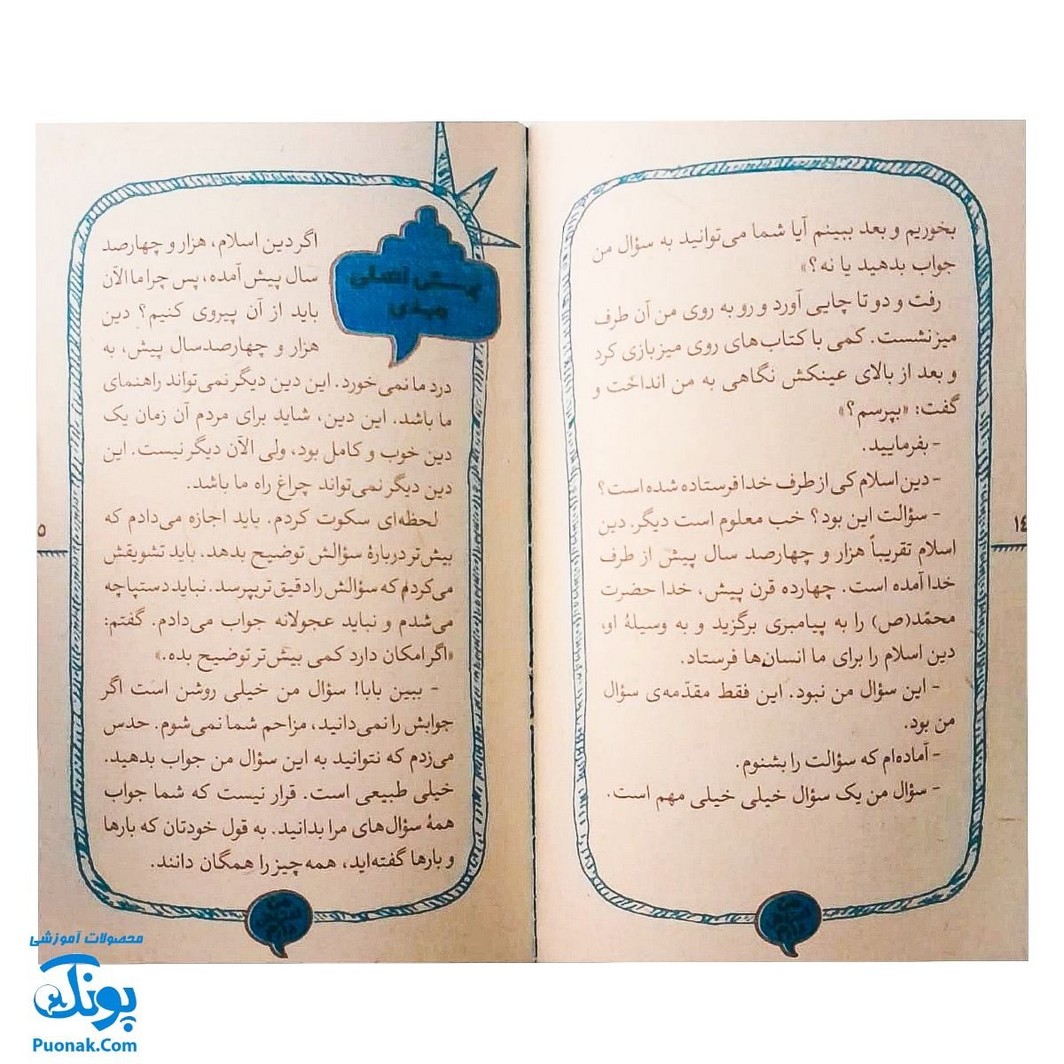 بخوریم و بعد ببینم آیا شما می‌توانید به سؤال من
جواب بدهید یا نه؟»
رفت و دو تا چایی آورد و رو به روی من آن طرف
میز نشست. کمی با کتاب‌های روی میز بازی کرد
و بعد از بالای عینکش نگاهی به من انداخت و
گفت: «بپرسم؟»
- بفرمایید.
- دین اسلام کی از طرف خدا فرستاده شده است؟
- سؤالت این بود؟ خب معلوم است دیگر. دین
اسلام تقریباً هزار و چهارصد سال پیش از طرف
خدا آمده است. چهارده قرن پیش، خدا حضرت
محمّد(ص) را به پیامبری برگزید و به وسیلهٔ او،
دین اسلام را برای ما انسان‌ها فرستاد.
- این سؤال من نبود. این فقط مقدّمه‌ی سؤال
من بود.
- آماده‌ام که سؤالت را بشنوم.
- سؤال من یک سؤال خیلی خیلی مهم است.
١٤
پرسش اصلی
مهدی
اگر دین اسلام، هزار و چهارصد
سال پیش آمده، پس چرا ما الآن
باید از آن پیروی کنیم؟ دین
هزار و چهارصدسال پیش، به
درد ما نمی‌خورد. این دین دیگر نمی‌تواند راهنمای
ما باشد. این دین، شاید برای مردم آن زمان یک
دین خوب و کامل بود، ولی الآن دیگر نیست. این
دین دیگر نمی‌تواند چراغ راه ما باشد.
لحظه‌ای سکوت کردم. باید اجازه می‌دادم که
بیش‌تر دربارهٔ سؤالش توضیح بدهد. باید تشویقش
می‌کردم که سؤالش را دقیق‌تر بپرسد. نباید دستپاچه
می‌شدم و نباید عجولانه جواب می‌دادم. گفتم:
«اگر امکان دارد کمی بیش‌تر توضیح بده.»
- ببین بابا! سؤال من خیلی روشن است اگر
جوابش را نمی‌دانید، مزاحم شما نمی‌شوم. حدس
می‌زدم که نتوانید به این سؤال من جواب بدهید.
خیلی طبیعی است. قرار نیست که شما جواب
همهٔ سؤال‌های مرا بدانید. به قول خودتان که بارها
و بارها گفته‌اید، همه چیز را همگان دانند.
٥
محصولات آموزشی
پونک
Puonak.Com